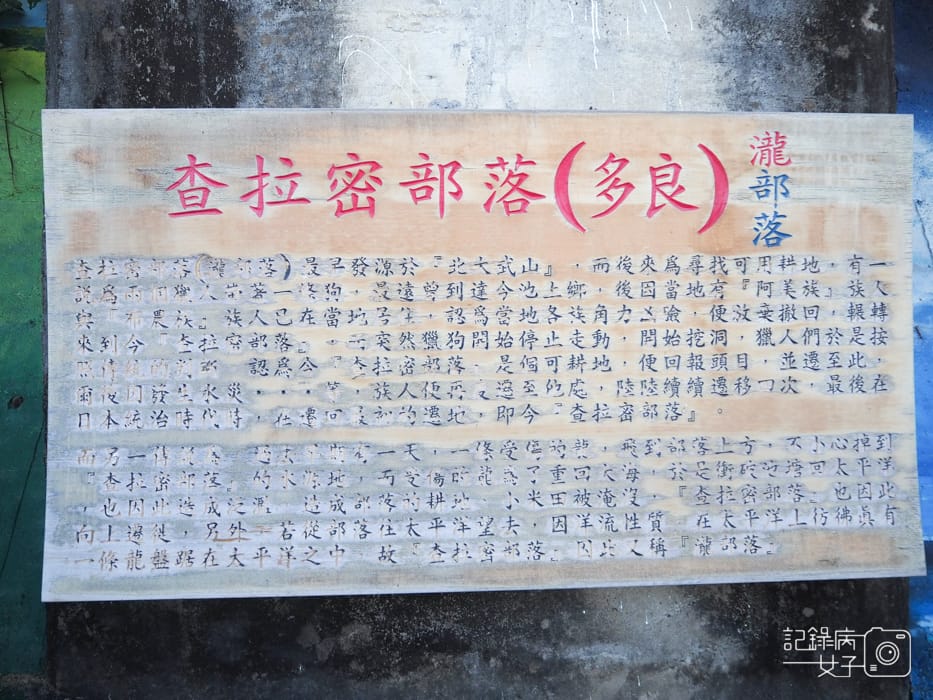 查拉密部落(多良)
瀧部落
查拉密部落(瀧部落)最早發源於『北大武山』，而後來為尋找可用耕地，有一
說為兩個獵人帶著一條狗，最遠曾到達今池上鄉，後因當地有『阿美族』族人
與『布農族』族人已在當地 認為當地 族角力 ，便放棄 輾轉
來到今『查拉密部落』， 突然獵狗開始停止走動，開始挖洞，獵人們於是接
照傳統的 認為今『查拉密部落』是個可耕地，便回報頭目並遷至此，
爾後因發生水災， 等，族人便再遷至他處，陸陸續續遷移 次，最後在
日本統治時代時，在遷回最初的遷地，即今『查拉密部落』。
而另一傳說為 一天，一條受傷的龍，飛到部落上方，不小心掉到
『查拉密部落』 水源地 龍為了重回大海，於是衝破池塘回太平洋
，也因此造成 造成部落的耕地小米田被淹沒，『查拉密部落』也因此
向上遷 ，另外若從部落往太平洋望去，因洋流性質，在太平洋上彷彿真有
一條龍盤踞在大平洋之中，故『查拉密部落』因此又稱『瀧部落』
記錄病
女子